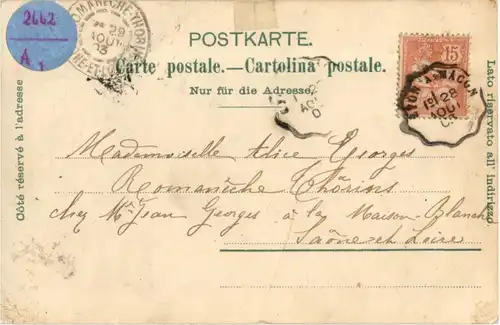 2662
A
1
ROMANÈCHE-THORINS
29
AOUT
03
POSTKARTE.
Carte postale.—Cartolina postale.
Nur für die Adresse.
Côté réservé à l'adresse
Lato riservato all' indirizzo
15
LYON A MACON
1° 28
AOUT
03
AOU
Mademoiselle Alice Georges
Romanêche Thorins
chez Mr Jean Georges à la Maison-Blanche
Saône et Loire